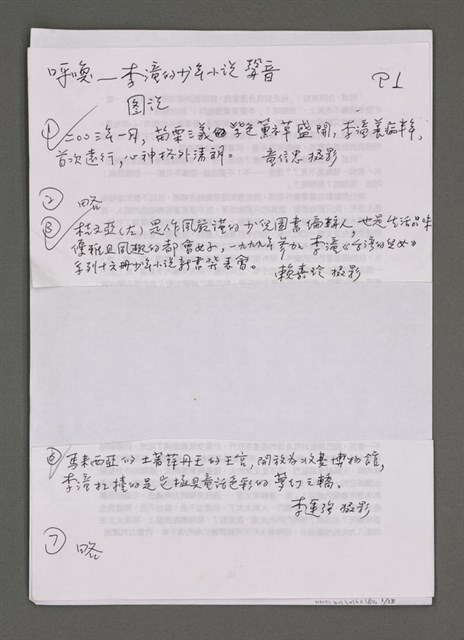 呼喚—李潼的少年小說聲音
P1
圖説
① 二〇〇三年一月，苗栗三義的紫色薰衣草盛開，李潼養病時，
首次遠行，心神格外清朗。 童信忠攝影
② 略
③ 桂文亞(左)是作風嚴謹的少兒圖書編輯人，也是生活品味
優雅且風趣的都會女子，一九九九年參加李潼《台灣的兒女》
系列十六冊少年小說新書發表會。
賴素玲攝影
⑥ 馬來西亞的土著蘇丹王的王宮，開放為檳城博物館，
李潼扛擡的是充極具童話色彩的夢幻三輪。
李連珍攝影
⑦ 略